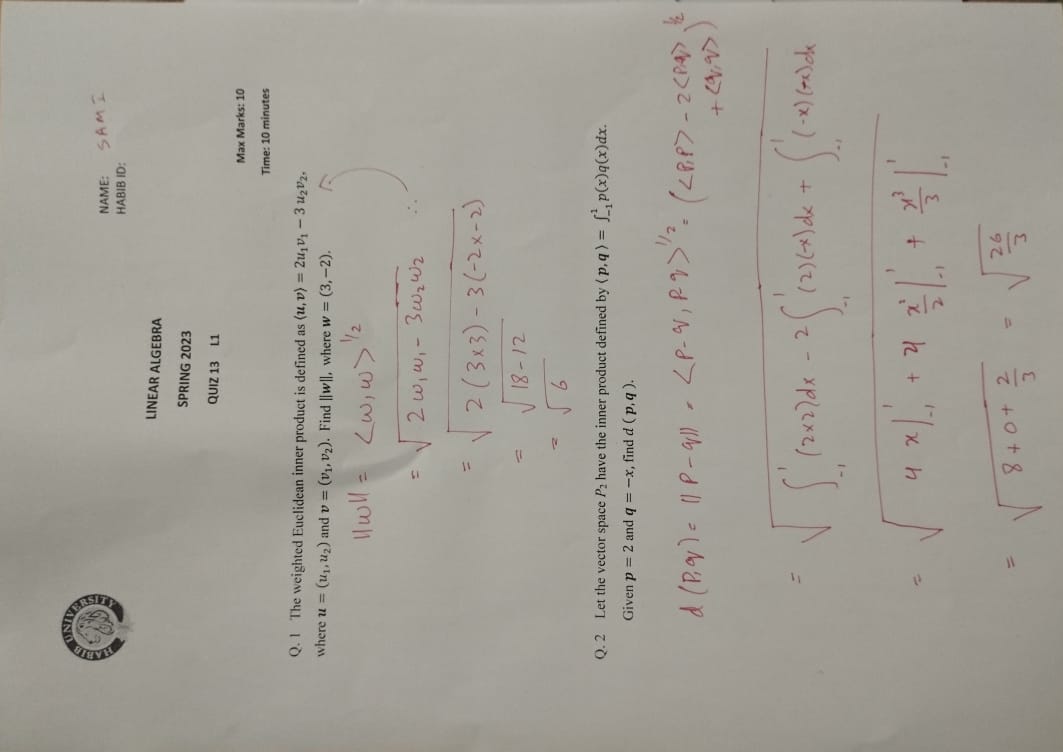 HABIB UNIVERSITY
NAME: SAMI
HABIB ID:
LINEAR ALGEBRA
SPRING 2023
QUIZ 13 L1
Max Marks: 10
Time: 10 minutes
Q. 1 The weighted Euclidean inner product is defined as ⟨u, v⟩ = 2u₁v₁ − 3 u₂v₂,
where u = (u₁, u₂) and v = (v₁, v₂). Find ||w||, where w = (3, −2).
||w|| = <w, w>^1/2
= √(2 w₁w₁ - 3w₂w₂) ∴
= √(2(3x3) - 3(-2x-2))
= √(18-12)
= √6
Q. 2 Let the vector space P₂ have the inner product defined by ⟨p, q⟩ = ∫₋₁¹ p(x)q(x)dx.
Given p = 2 and q = −x, find d (p, q).
d(P,q) = ||P-q|| = <P-q, P-q>^1/2 = (<P,P> - 2<P,q>
+ <q,q>)^1/2
= √(∫₋₁¹ (2x2)dx - 2∫₋₁¹ (2)(-x)dx + ∫₋₁¹ (-x)(-x)dx)
= √(4 x|₋₁¹ + 4 x²/2|₋₁¹ + x³/3|₋₁¹)
= √(8+0+2/3) = √(26/3)